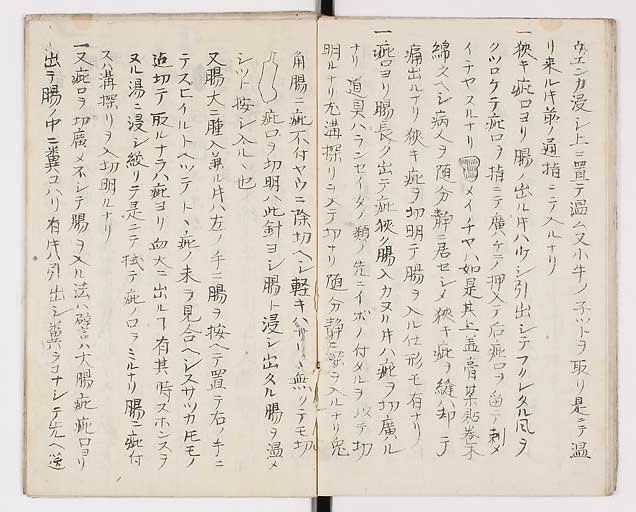 ウエンカ浸シ上ニ置テ温ム又小牛ノ子ツトヲ取リ是ニテ温
リ来ル片前ノ通指ニテ入ルナリ
一狭キ疵口ヨリ腸ノ出ル片ハ引出シテフクレタル風ヲ
クツロケテ疵口ヲ指ニテ廣ハケテ押入テ后疵口ヲ留テ刺メ
イチヤスルナリ メイチヤハ如是其上盖膏薬貼巻木
綿文ヘシ病人ヲ随分静ニ居セシメ狭キ疵ヲ縫却テ
痛出ルナリ狭キ疵ヲ切明テ腸ヲ入ル仕形モ有ナリ
一疵口ヨリ腸長ク出テ疵狭ク腸入カヌル片ハ疵ヲ切廣ル
ナリ道具ハランセイタノ類ノ先ニイボノ付タルヲ以テ切
明ルナリ尤溝探リヲ入テ切ナリ随分静ニ探ヲ入ルナリ兎
角腸ニ疵不付ヤウニ除切ヘシ軽キハ 無クテモ切
疵口ヲ切明ハ此針ヨシ腸ト浸シ出タル腸ヲ温メ
シツト按シ入ルヘ也
又腸大ニ腫入兼ル片ハ左ノ手ニ腸ヲ按ヘテ置テ右ノ手ニ
テスヒイルトヘツテト疵ノ来ヲ見合ヘシスサツカ
迠切テ取ルナラハ疵ヨリ血大ニ出ルヿ有其時スホンスヲ
ヌル湯ニ浸シ絞リテ是ニテ拭テ疵ノ口ヲミルナリ腸ニ疵付
スハ溝探リヲ入切明ルナリ
一又疵口ヲ切廣メネシテ腸ヲ入ル法ハ譬ハ大腸疵疵口ヨリ
出テ腸ノ中ニ糞コハリ有片ハ引出シ糞ヲコナシテ先ヘ送